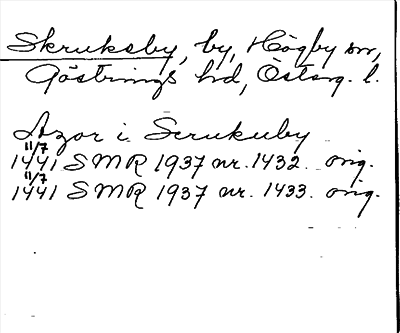 Skruksby, by, Högby sn,
Göstrings hd, Österg. l.
Azor i Scrukuby
11/7
1441 SMR 1937 nr. 1432 orig.
11/7
1441 SMR 1937 nr. 1433. orig.